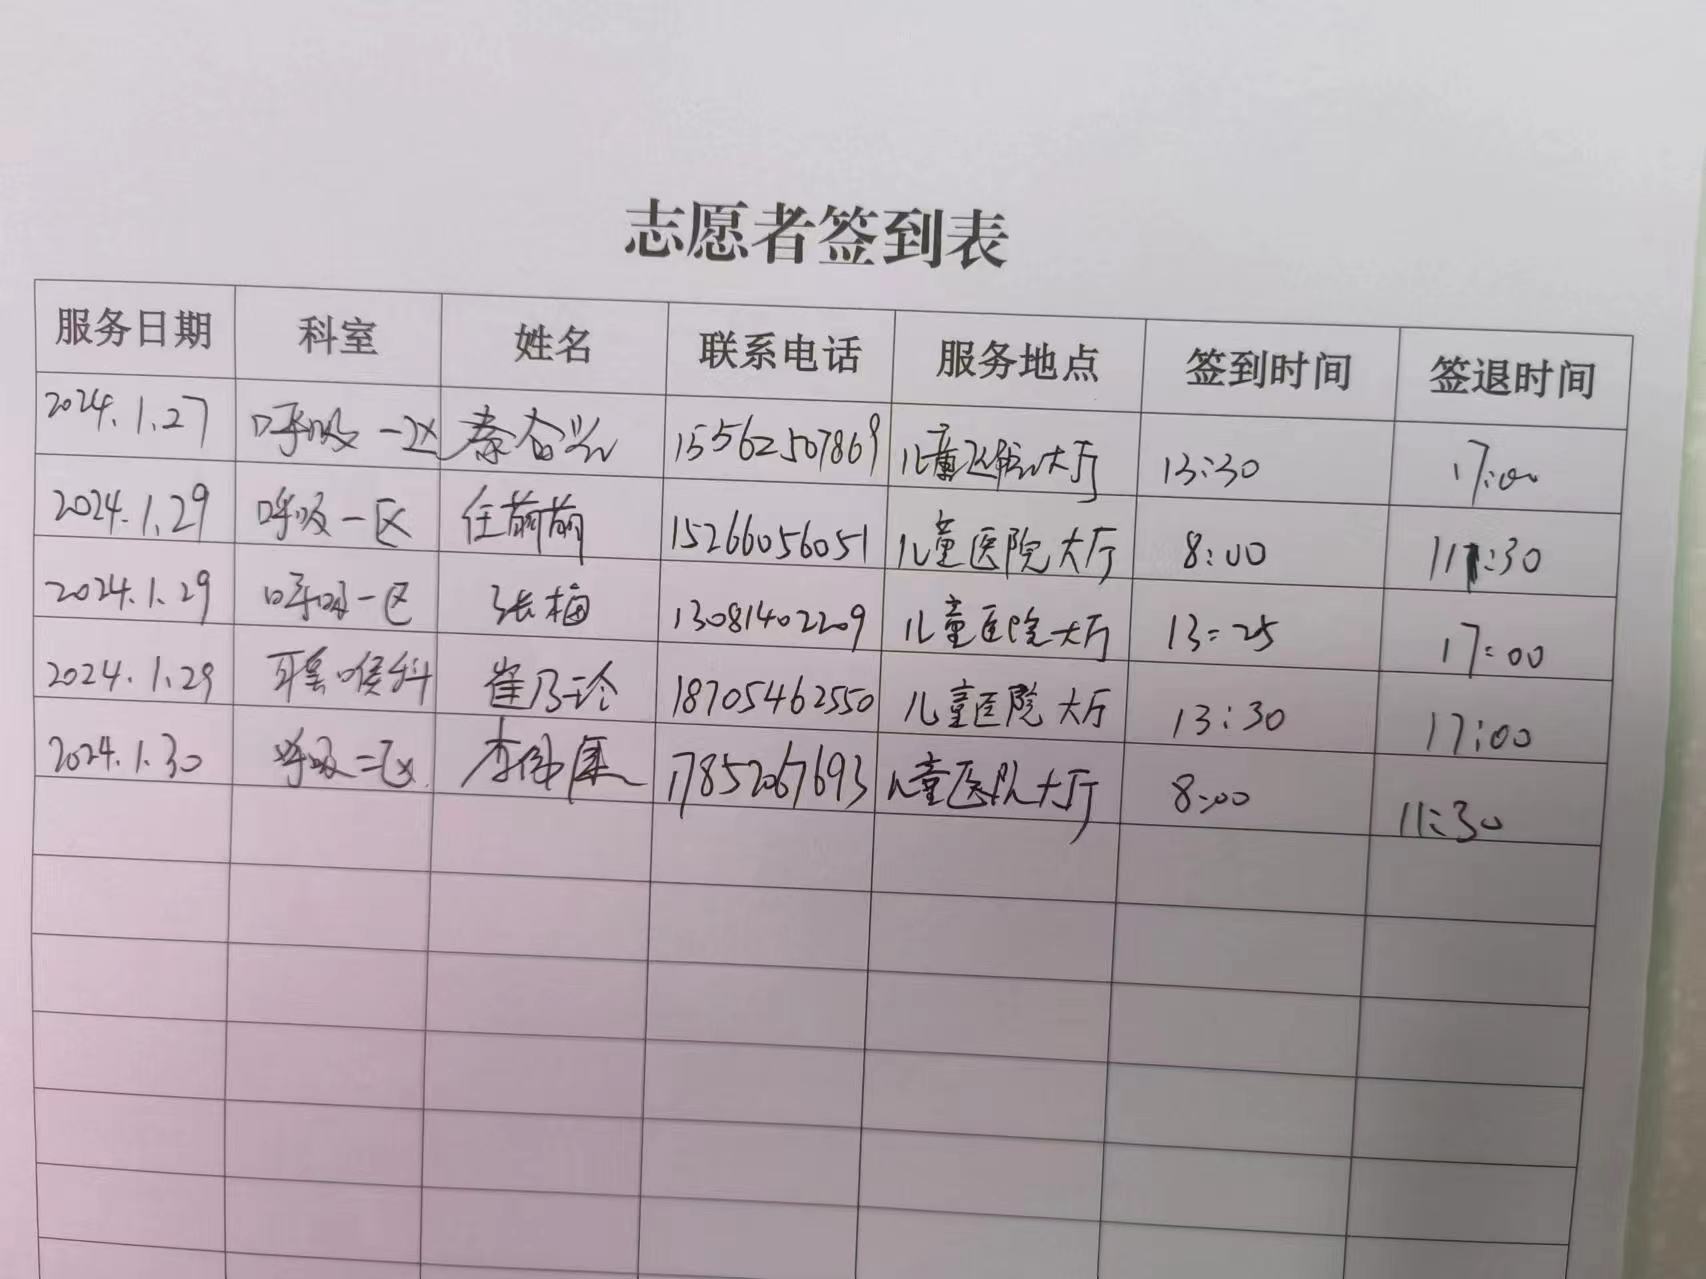 志愿者签到表
服务日期 科室 姓名 联系电话 服务地点 签到时间 签退时间
2024.1.27 呼吸一区 秦 15562507869 儿童医院大厅 13:30 17:00
2024.1.29 呼吸一区 任萠萠 15266056051 儿童医院大厅 8:00 11:30
2024.1.29 呼吸一区 张梅 13081402209 儿童医院大厅 13:25 17:00
2024.1.29 耳鼻喉科 崔乃玲 18705462550 儿童医院大厅 13:30 17:00
2024.1.30 呼吸二区 李 康 17852067693 儿童医院大厅 8:00 11:30